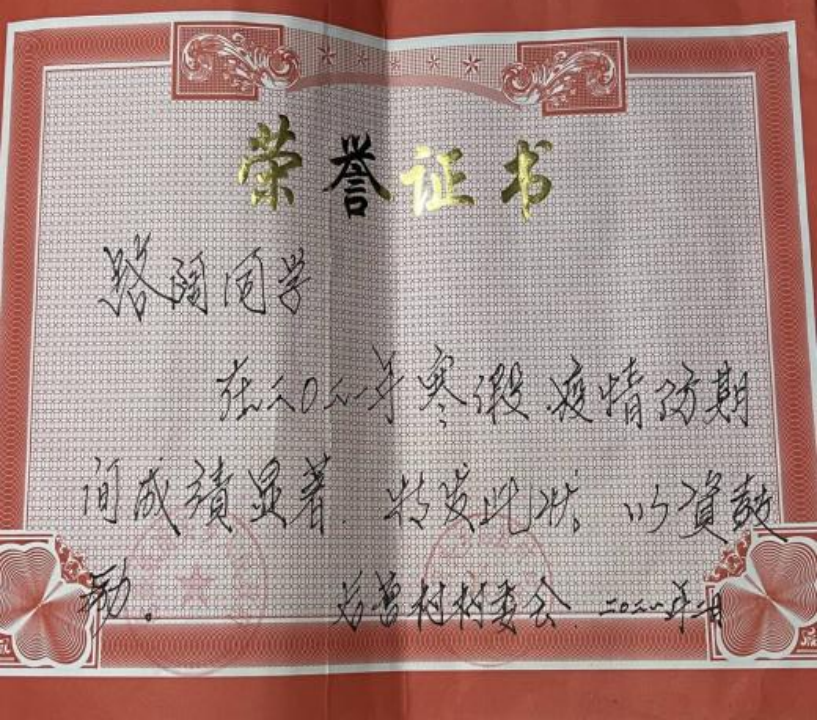 荣誉证书
路阔同学
在二〇二一年寒假疫情防期
间成绩显著.特发此状。以资鼓
励。
村村委会.二〇二一年二月